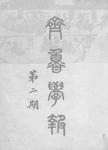 齊魯學報
第二期